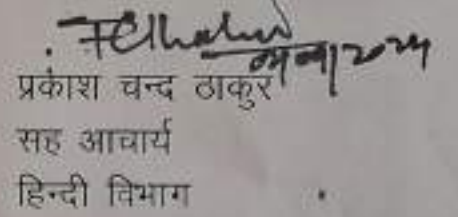 प्रकाश चन्द ठाकुर
सह आचार्य
हिन्दी विभाग